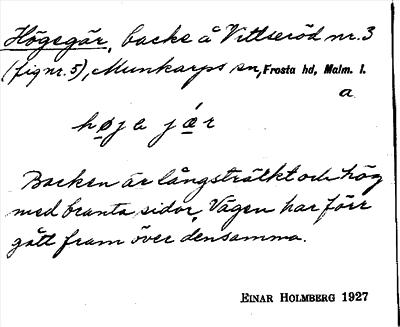 Högegär, backe å Vittseröd nr. 3
(fig nr. 5), Munkarps sn, Frosta hd, Malm. l.
a
høja jær
Backen är långsträckt och hög
med branta sidor. Vägen har förr
gått fram över densamma.
EINAR HOLMBERG 1927